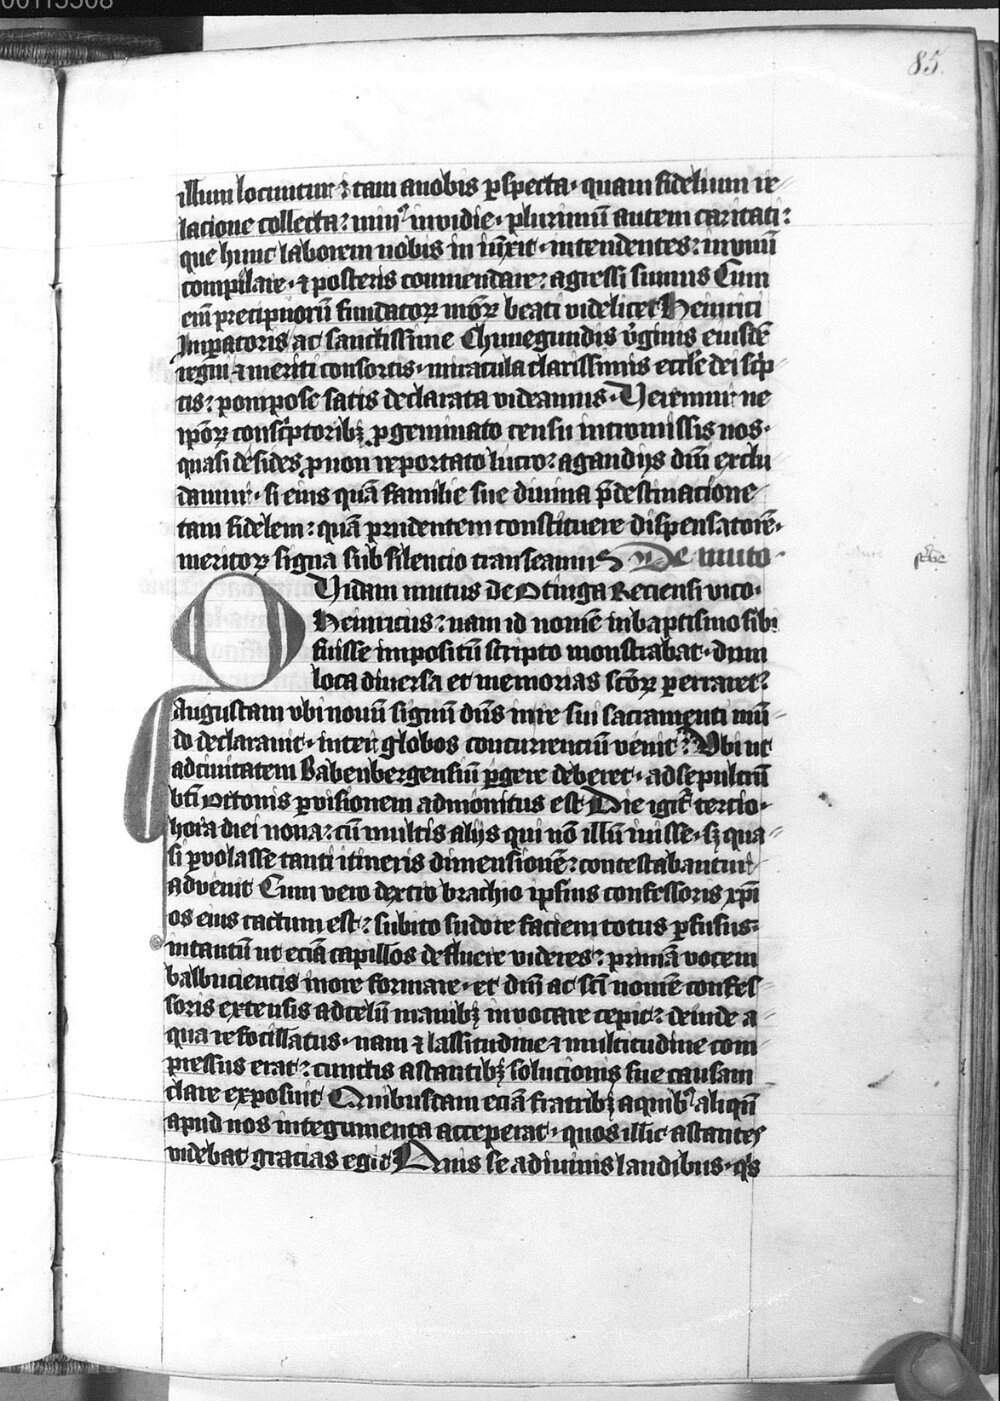 00115308
85.
illum locuntur ⁊ tam a nobis ꝑspecta · quam fidelium re
lacione collecta ⁊ inuidie · plurimū autem caritati ⁊
que hunc laborem nobis iniūxit · intendentes ⁊ in vnū
compilare · ⁊ posteris commendare ⁊ agressi sumus Cum
eīn precipuorū fundatoꝝ beati videlicet Heinrici
Imꝑatoris ac sanctissime Chunegundis v̓ginis eiusdē
regni ⁊ meriti consortis · miracula clarissimis eccl̄e dei sc̓p
tis ⁊ pompose satis declarata videamus · Veremur ne
ip̄oꝝ consc̓ptoribꝫ ꝓ geminato censu intromissis nos ·
quasi desides ꝓ non reportato lucro ⁊ a gaudijs dn̄i exclu
damur · si eius quā familie sue diuina p̄destinacione
tam fidelem ⁊ quā prudentem constituere dispensatorē ·
meritoꝝ signa sub silencio transeamus De muto ·
Quidam mutus de Otinga Reciensi vico ·
Heinricus ⁊ nam id nomē in baptismo sibi
fuisse impositū scripto monstrabat · dum
loca diuersa et memorias sc̄oꝝ perraret ⁊
Augustam vbi nouū signū dn̄s mire sui sacramenti mū
do declarauit · inter globos concurrenciū venit ⁊ Vbi ut
ad ciuitatem Babenbergensium ꝑgere deberet · ad sepulcrū
bt̄i Ottonis ꝑ visionem admonitus est Die igit̄ tercio ·
hora diei nona ⁊ cū multis alijs qui nō illū iuisse · sꝫ qua
si ꝑuolasse tanti itineris dimensionē ⁊ contestabantur
aduenit Cum vero dextro brachio ipsius confessoris xp̄i
os eius tactum est ⁊ subito sudore faciem totus ꝑfusus ⁊
intantū ut eciā capillos defluere videres ⁊ primā vocem
balbucientis more formare · et dn̄i ac sc̄i nomē confes
soris extensis ad celū manibꝫ inuocare cepit ⁊ deinde a
qua refocillatus · nam ⁊ lassitudine ⁊ multitudine com
pressus erat ⁊ cunctis astantibꝫ solucionis sue causam
clare exposuit Quibusdam eciā fratribꝫ a quibꝰ aliqn̄
apud nos integumenta acceperat · quos illic astantes
videbat gracias egit se a diuinis laudibus · q̓s